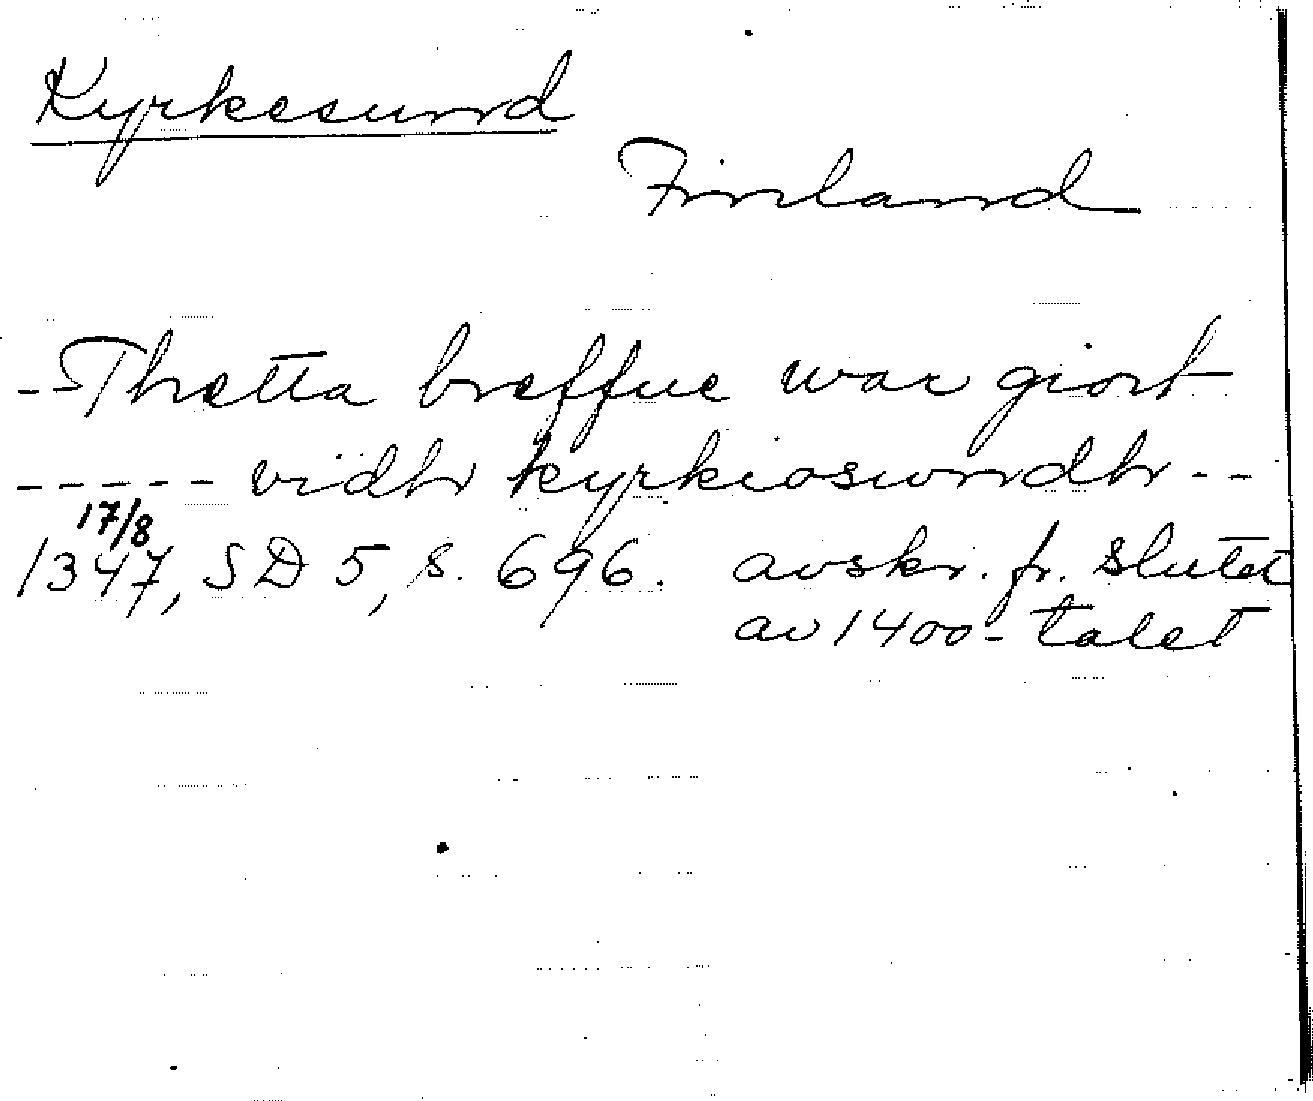 Kyrkesund
Finland
-- Thetta breffue war giort
----- vidhr kyrkiosundhr --
17/8
1347, SD 5, s. 696. avskr. fr. slutet
av 1400-talet